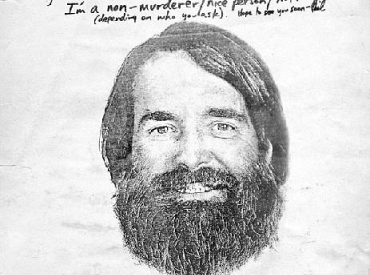 I'm a non-murderer/nice person/
(depending on who you ask). Hope to see you soon-Phil